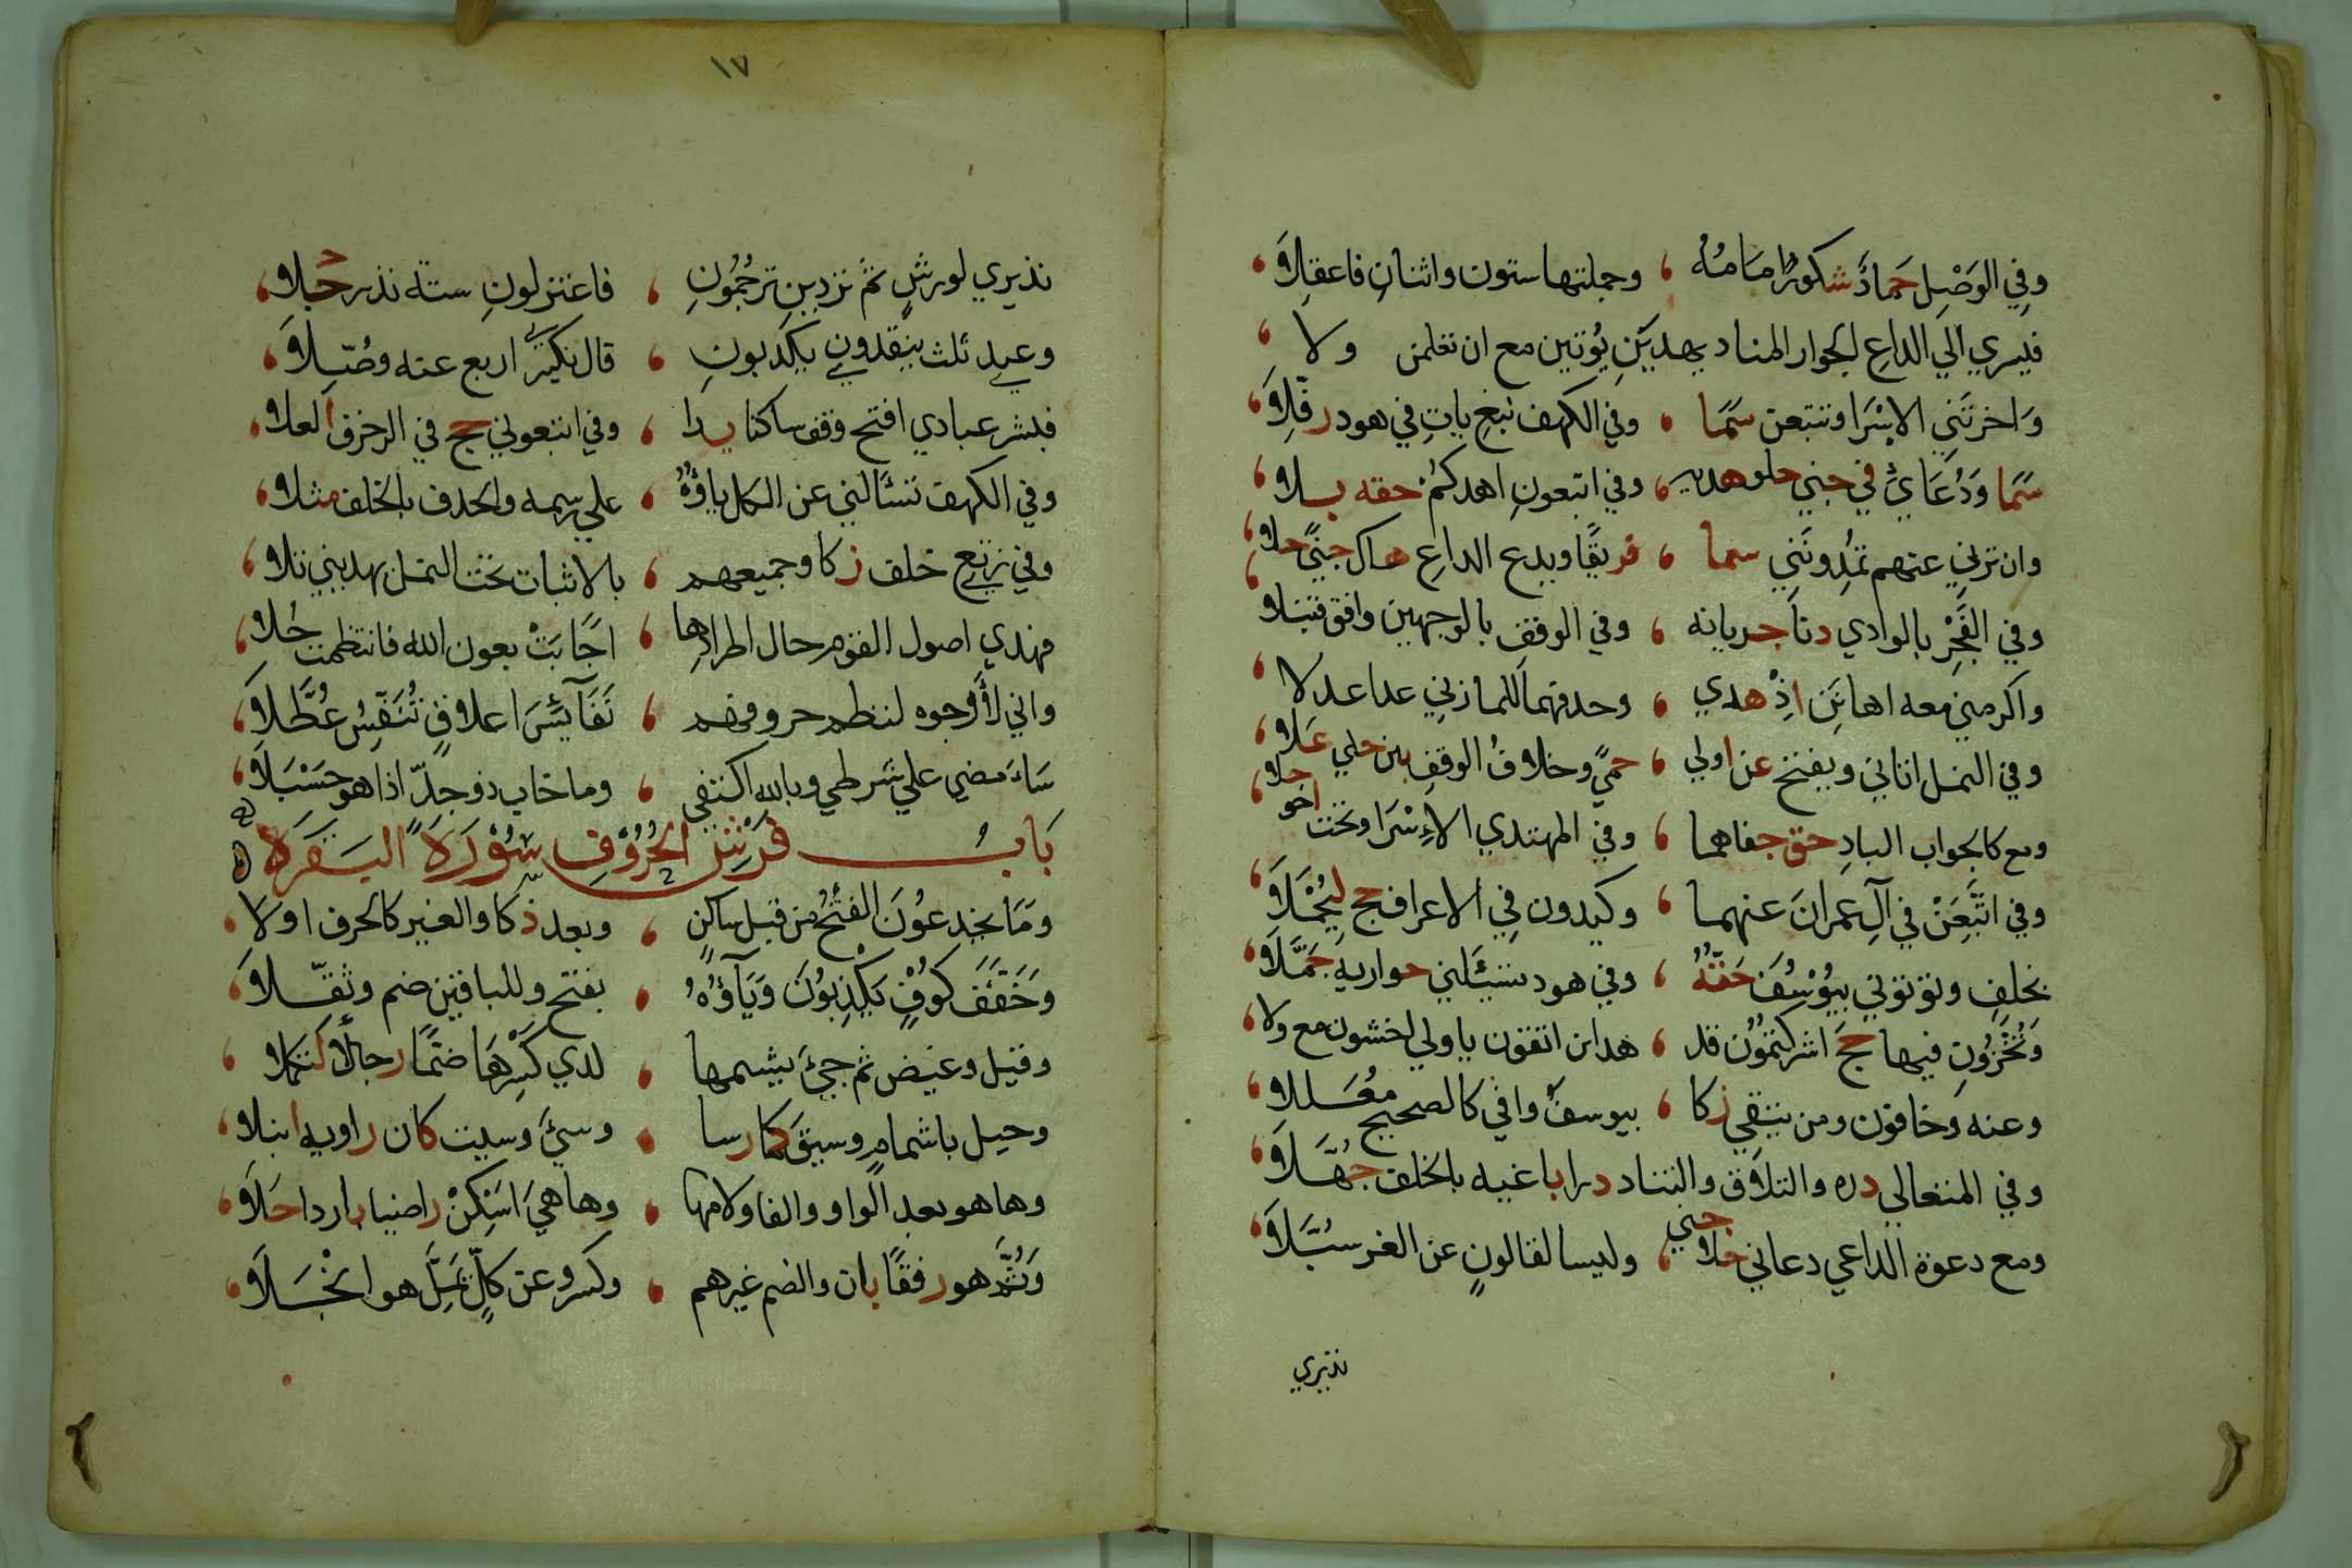 وفي الوَصْلِ حَمادٌ شكورٌ امَامُهُ ، وجملتها ستون واثنانِ فاعقِلاَ ،
فيسري الي الداعِ الجوار المناد يهديَنِ يُوتين مع ان تعلمن ولا ،
وَاخرتَنِي الاِسْرَا وتتبعن سَمَا ، وفي الكهف نبغِ ياتِ في هود رفّلاَ ،
سَمَا وَدُعَائِ في جني حلو هديه ، وفي اتبعونِ اهدكُمْ حقه بلا ،
وان ترنِي عنهم تُمِدُّونَنِي سما ، فريقًا ويدع الداعِ هاك جنيً حلا ،
وفي الفَجْرِ بالوادي دنا جريانه ، وفي الوقف بالوجهين وافق قنبلا ،
واكرمني معه اهانَنِ اذْ هدي ، وحذفهما للمازني عدا عدلا ،
وفي النمل اتاني ويفتح عن اولي ، حميً وخلاف الوقف بين حلي عَلا ،
ومع كالجواب البادِ حق جناهما ، وفي المهتدي الاِسْرَا وتحت اخو حلا ،
وفي اتَّبَعَنْ في آلِ عمرانَ عنهما ، وكيدون فِي الاعراف حج لِيُحْمَلاَ ،
بخلفٍ وتوتوني بيُوْسُفَ حَقُّهُ ، وفي هود تسئَلني حواريه جَمَّلاَ ،
وَتُخْزُونِ فيها حجَّ اشركتمُوْن قد ، هدان اتقون يا اولي اخشون مع ولا ،
وعنه وخافون ومن يتقي زكا ، بيوسفَ وافي كالصحيح مُعَللا ،
وفي المتعالي دره والتلاق والتناد درا باغيه بالخلف جُهّلاَ ،
ومع دعوة الداعي دعاني حلا جني ، وليسا لقالونٍ عن الغر سُبَّلاَ ،
نذيري
١٧
نذيري لورشٍ ثم تردينِ ترجُمُونِ ، فاعتزلونِ ستة نذر جلا ،
وعيدي ثلث ينقذونِ يكذبونِ ، قال نكيري اربع عنه وصّلاَ ،
فبشر عبادي افتح وقف ساكنا يدا ، وفي اتبعوني حج في الزخرف العلا ،
وفي الكهف تسئَلني عن الكل ياؤهُ ، علي رسمه والحذف بالخلف مثلا ،
وفي نرتعي خلف زكا وجميعهم ، بالاثبات تحت النمل يهديني تلا ،
فهذي اصول القوم حال اطرادِها ، اجَابَتْ بعون الله فانتظمت حُلا ،
واني لأرجوه لنظم حروفهم ، نَفَآئِسَ اعلاقٍ تُنَفِّسُ عُطَّلاَ ،
سَاَمضي علي شرطي وبالله اكتفي ، وما خاب ذو جدّ اذا هو حَسْبَلاَ ،
بَابُ فَرْشِ الحُرُوْفِ سُوْرَةَ البَقَرَة
وَمَا يخدعُونَ الفتحُ من قبل ساكنٍ ، وبعد ذكا والغير كالحرف اولا ،
وَخَفَّفَ كُوْفٍ يَكْذِبُوْنَ وَيَآؤُهُ ، بفتح وللباقين ضم وثقّلاَ ،
وقيل وغيض ثم جيْءَ يشمها ، لدي كَسْرِهَا ضمًّا رجالٌ لتكملا ،
وحيل باشمامٍ وسيقَ كما رسا ، وسيْءَ وسيئت كان راويه انبلا ،
وها هو بعد الواو والفا ولامها ، وها هيَ اَسْكِنْ راضيا باردا حَلاَ ،
وَثُمَّ هو رفقًا بان والضم غيرهم ، وكسر وعن كلٍّ يُمِلَّ هو انْجَلاَ ،